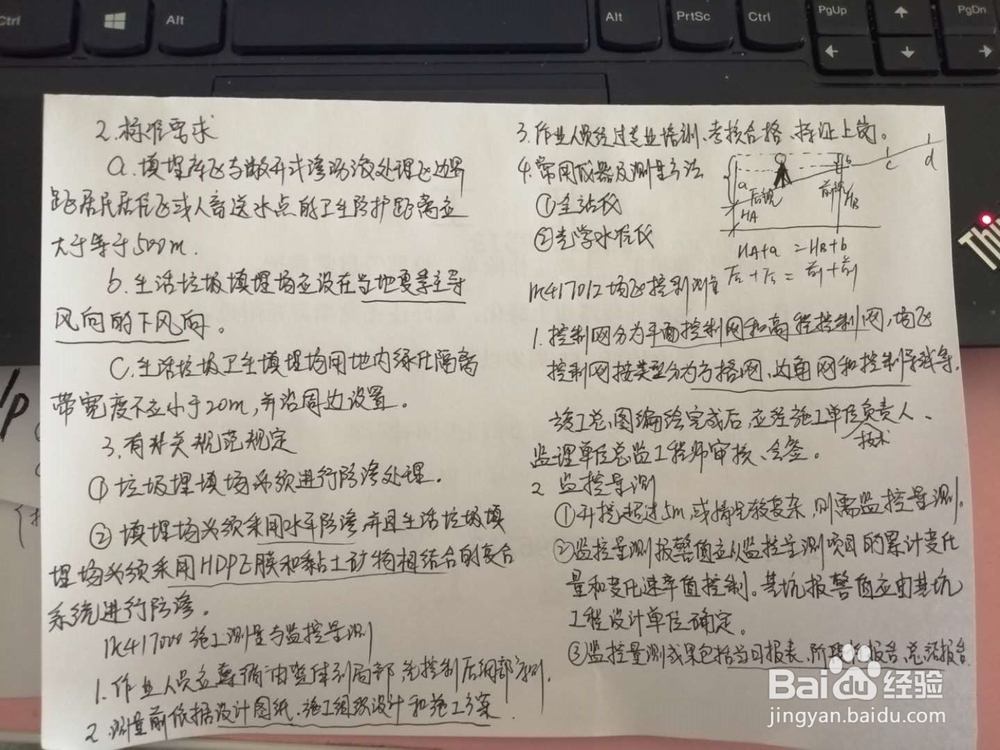 Ctrl
Alt
PrtSc
Ctrl
PgUp
PgDn
2.标准要求
a.填埋库区与敞开式渗沥液处理区边界
距居民居住区或人畜送水点的卫生防护距离应
大于等于500m.
b.生活垃圾填埋场应设在当地夏季主导
风向的下风向。
C.生活垃圾卫生填埋场用地内绿化隔离
带宽度不应小于20m,并沿周边设置。
3.有关规范规定
①垃圾埋填场必须进行防渗处理.
②填埋场必须采用水平防渗并且生活垃圾填
埋场必须采用HDPE膜和黏土矿物相结合的复合
系统进行防渗。
1K417000施工测量与监控量测
1.作业人员应遵循由整体到局部,先控制后细部
2.测量前依据设计图纸、施工组织设计和施工方案.
3.作业人员经过专业培训、考核合格,持证上岗。
4.常用仪器及测量方法
①全站仪
②光学水准仪
a
后视
前视
b
c
d
HA
HB
HA+a = HB+b
1K417012场区控制测量
1.控制网分为平面控制网和高程控制网,场区
控制网按类型分为方格网、边角网和控制导线等.
竣工总图编绘完成后,应经施工单位负责人、
技术
监理单位总监工程师审核、会签。
2 监控量测
①开挖超过5m,或情况较复杂,则需监控量测.
②监控量测报警值应从监控量测项目的累计变化
量和变化速率值控制。基坑报警值应由基坑
工程设计单位确定。
③监控量测成果包括当日报表、阶段性报告、总结报告.
Thi
Baidu经验
jingyan.baidu.com